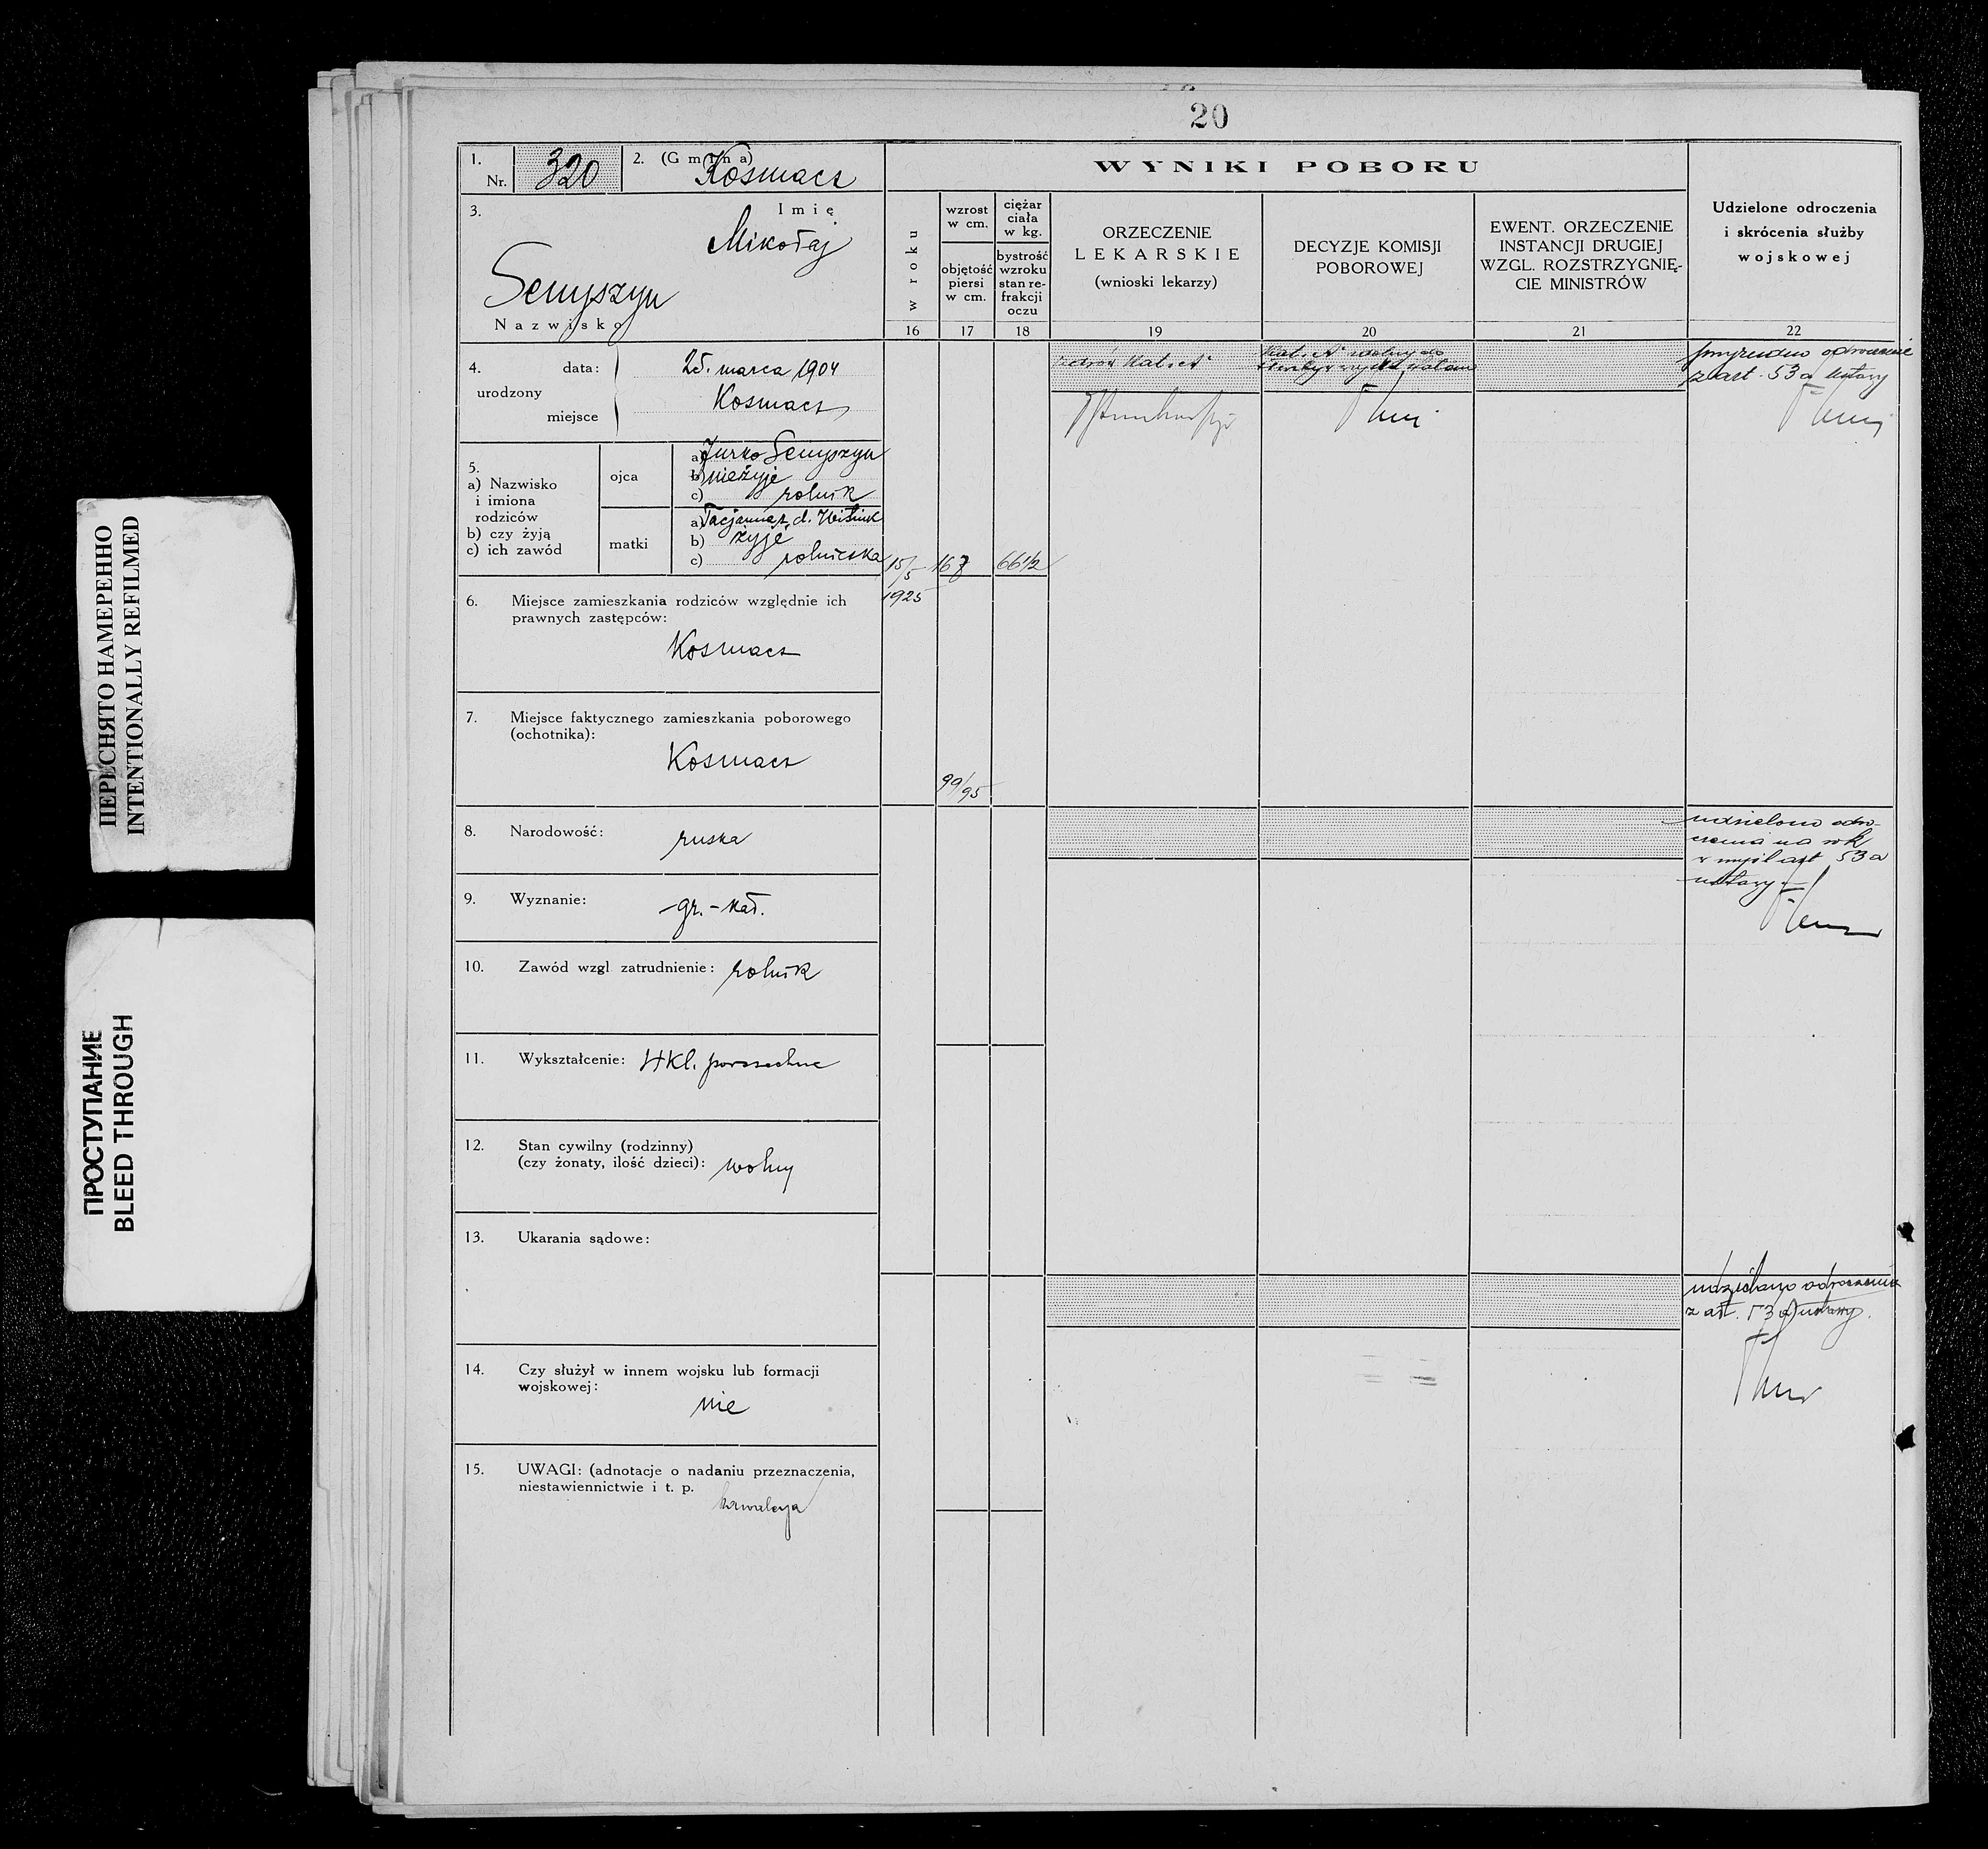 20
1.
Nr. 320
2. (Gmina) Kosmacz
3. Imię
Mikołaj
Semyszyn
Nazwisko
4. urodzony
data: 25. marca 1904
miejsce Kosmacz
5.
a) Nazwisko
i imiona
rodziców
b) czy żyją
c) ich zawód
ojca
a) Jurko Semyszyn
b) nieżyje
c) rolnik
matki
a) Tacjanna z d.
b) żyje
c) rolniczka
6. Miejsce zamieszkania rodziców względnie ich
prawnych zastępców:
Kosmacz
7. Miejsce faktycznego zamieszkania poborowego
(ochotnika):
Kosmacz
8. Narodowość: ruska
9. Wyznanie: gr.-kat.
10. Zawód wzgl. zatrudnienie: rolnik
11. Wykształcenie: 4 kl. powszechne
12. Stan cywilny (rodzinny)
(czy żonaty, ilość dzieci): wolny
13. Ukarania sądowe:
14. Czy służył w innem wojsku lub formacji
wojskowej:
nie
15. UWAGI: (adnotacje o nadaniu przeznaczenia,
niestawiennictwie i t. p.
kawalerja
WYNIKI POBORU
w roku
16
wzrost
w cm.
objętość
piersi
w cm.
17
ciężar
ciała
w kg.
bystrość
wzroku
stan re-
frakcji
oczu
18
ORZECZENIE
LEKARSKIE
(wnioski lekarzy)
19
DECYZJE KOMISJI
POBOROWEJ
20
EWENT. ORZECZENIE
INSTANCJI DRUGIEJ
WZGL. ROZSTRZYGNIĘ-
CIE MINISTRÓW
21
Udzielone odroczenia
i skrócenia służby
wojskowej
22
15/5
1925
167
66 1/2
99/95
zdrów Kat. A
Kat. A zdolny do
przyznano odroczenie
z art. 53 a ustawy
udzielono odro-
czenia na rok
w myśl art 53 a
ustawy
udzielono odroczenia
z art. 53 a) ustawy.
ПЕРЕСНЯТО НАМЕРЕННО
INTENTIONALLY REFILMED
ПРОСТУПАНИЕ
BLEED THROUGH